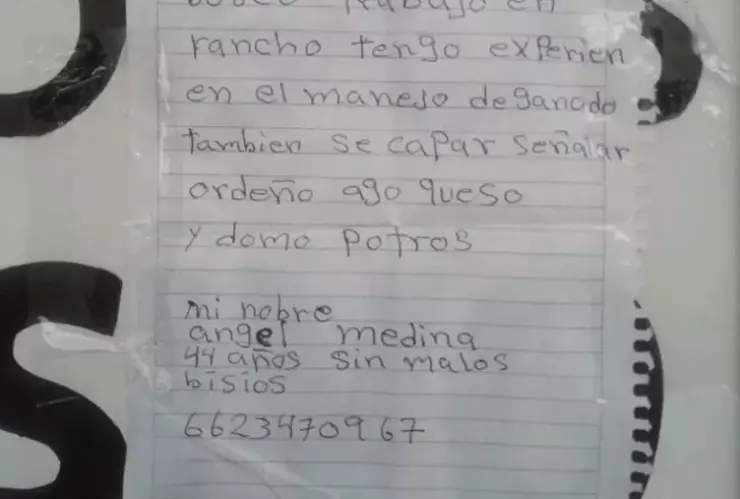 busco trabajo en
rancho tengo experien
en el manejo de ganado
tambien se capar señalar
ordeño ago queso
y domo potros
mi nobre
angel medina
44 años sin malos
bisios
6623470967